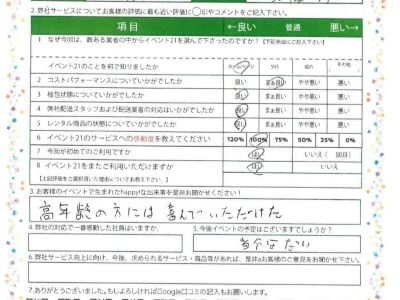 2.弊社サービスについてお客様の評価に最も近い評価に○印やコメントをご記入下さい。
項目 ←良い 普通 悪い→
1 なぜ今回は、数ある業者の中からイベント21を選んで下さったのですか?【下記余白にご記入下さい】
イベント21のことを何で知りましたか ホームページ チラシ その他
2 コストパフォーマンスについていかがでしたか 良い まぁ良い やや悪い 悪い
3 梱包状態についていかがでしたか 良い まぁ良い やや悪い 悪い
4 弊社配送スタッフおよび配送業者の対応はいかがでしたか 良い まぁ良い やや悪い 悪い
5 レンタル商品の状態についていかがでしたか 良い まぁ良い やや悪い 悪い
6 イベント21のサービスへの感動度を教えてください 120% 100% 75% 50% 25% 0%
7 今回が初めてのご利用ですか はい いいえ( 回目)
8 イベント21をまたご利用いただけますか はい いいえ
【上記評価をご選択頂いた理由についてお教え下さい。】
3.お客様のイベントで生まれたhappy!な出来事を是非お聞かせください!
高年齢の方には喜んでいただけた
4.弊社の対応で一番感動した社員はいますか。 5.今後イベントの予定はございますでしょうか?
当分はない
6.弊社サービス向上に向け、今後、求められるサービス・商品等があれば、是非お客様のご意見をお聞かせ下さい。
7.ありがとうございました。もしよろしければGoogle口コミの記入もお願いします。